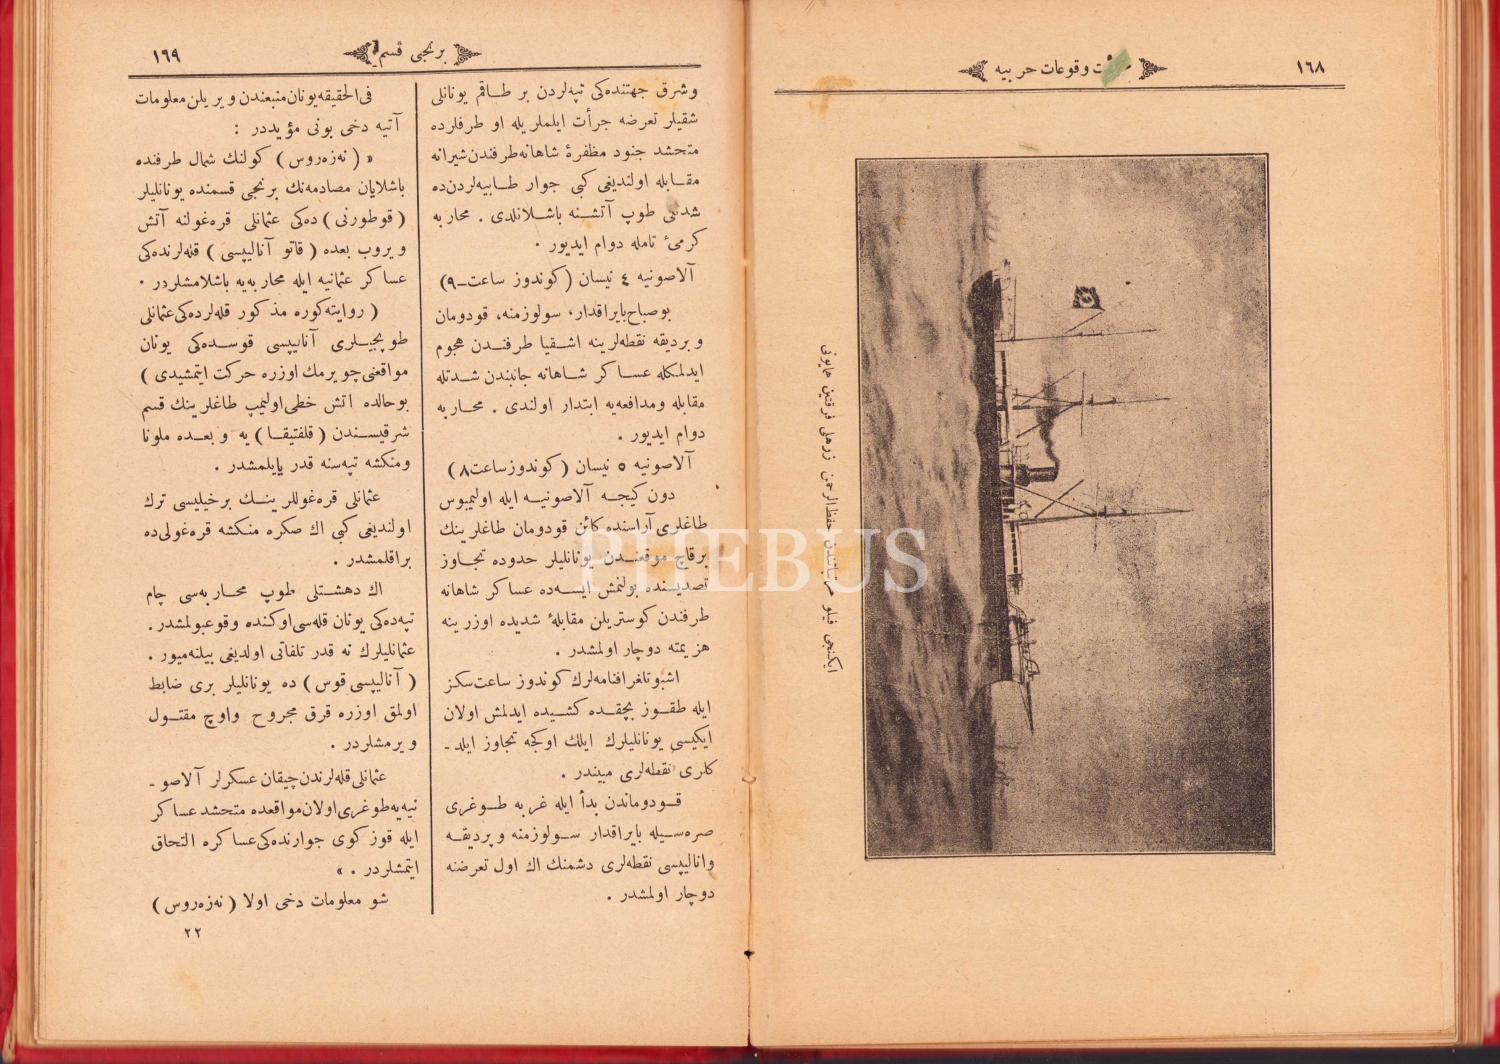 ١٦٨
وقوعات حربيه
ايكنجى فيلو حفظ الرحمن زرهلى فرقتين هايونى
برنجى قسم
١٦٩
وشرق جهتنده‌كى تپه‌لردن بر طاقم يونانلى
شقيلر تعرضه جرأت ايلملريله او طرفلرده
متحشد جنود مظفرۀ شاهانه طرفندن شيرانه
مقابله اولنديغى كبى جوار طابيه‌لردن ده
شدتلى طوپ آتشنه باشلانلدى . محاربه
كرمئ تامله دوام ايديور .
آلاصونيه ٤ نيسان (كوندوز ساعت ـ ٩)
بو صباح بايراقدار، سولوزمنه، قودومان
و برديقه نقطه‌لرينه اشقيا طرفندن هجوم
ايدلمكله عساكر شاهانه جانبندن شدتله
مقابله ومدافعه‌يه ابتدار اولندى . محاربه
دوام ايديور .
آلاصونيه ٥ نيسان (كوندوز ساعت ٨)
دون كيجه آلاصونيه ايله اوليمبوس
طاغلرى آراسنده كائن قودومان طاغلرينك
برقاچ موقعندن يونانليلر حدوده تجاوز
تصديسنده بولنمش ايسه‌ده عساكر شاهانه
طرفندن كوستريلن مقابلۀ شديده اوزرينه
هزيمته دوچار اولمشدر .
اشبو تلغرافنامه‌لرك كوندوز ساعت سكز
ايله طقوز بچقده كشيده ايدلمش اولان
ايكيسى يونانليلرك ايلك اوكجه تجاوز ايلد ـ
كلرى نقطه‌لرى مبيندر .
قودوماندن بدأ ايله غربه طوغرى
صره‌سيله بايراقدار سولوزمنه و پرديقه
وآناليپسى نقطه‌لرى دشمنك اك اول تعرضنه
دوچار اولمشدر .
فى الحقيقه يونان منبعندن ويريلن معلومات
آتيه دخى بونى مؤيددر :
« (نه‌زه‌روس) كولنك شمال طرفنده
باشلايان مصادمه‌نك برنجى قسمنده يونانليلر
(قوطورنى) ده‌كى عثمانلى قره‌غولنه آتش
ويروب بعده (قاتو آناليپسى) قله‌لرنده‌كى
عساكر عثمانيه ايله محاربه‌يه باشلامشلردر .
(روايته كوره مذكور قله‌لرده‌كى عثمانلى
طوپجيلرى آناليپسى قوسده‌كى يونان
مواقعنى چويرمك اوزره حركت ايتمشيدى)
بو حالده آتش خطى اوليمپ طاغلرينك قسم
شرقيسندن (قلفتيقا) يه و بعده ملونا
ومنكشه تپه‌سنه قدر يايلمشدر .
عثمانلى قره‌غوللرينك برخيليسى ترك
اولنديغى كبى اك صكره منكشه قره‌غولى ده
براقلمشدر .
اك دهشتلى طوپ محاربه‌سى چام
تپه‌ده‌كى يونان قله‌سى اوكنده وقوعبولمشدر .
عثمانليلرك نه قدر تلفاتى اولديغى بيلنه‌ميور .
(آناليپسى قوس) ده يونانليلر برى ضابط
اولمق اوزره قرق مجروح واوچ مقتول
ويرمشلردر .
عثمانلى قله‌لرندن چيقان عسكرلر آلاصو ـ
نيه‌يه طوغرى اولان مواقعده متحشد عساكر
ايله قوزكوى جوارنده‌كى عساكره التحاق
ايتمشلردر . »
شو معلومات دخى اولا (نه‌زه‌روس)
٢٢
PHEBUS